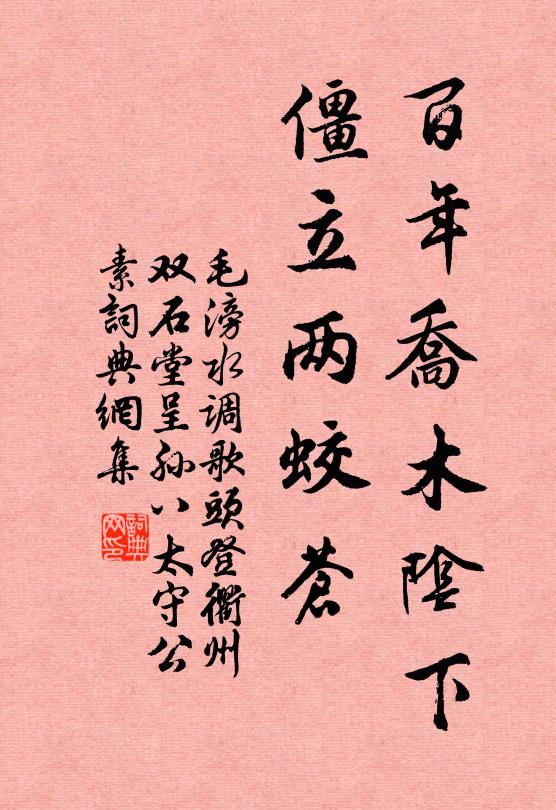 百年喬木陰下
僵立两蛟苍
毛滂水调歌頭登衢州
双石堂呈孙八太守公
素詞典網集
詞典网印